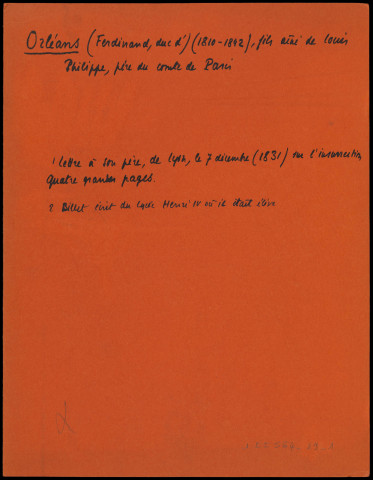 Orléans (Ferdinand, duc d') (1810-1842), fils aîné de Louis
Philippe, père du comte de Paris
1 lettre à son père, de Lyon, le 7 décembre (1831) sur l'insurrection,
Quatre grandes pages.
Billet écrit du lycée Henri IV où il était élève